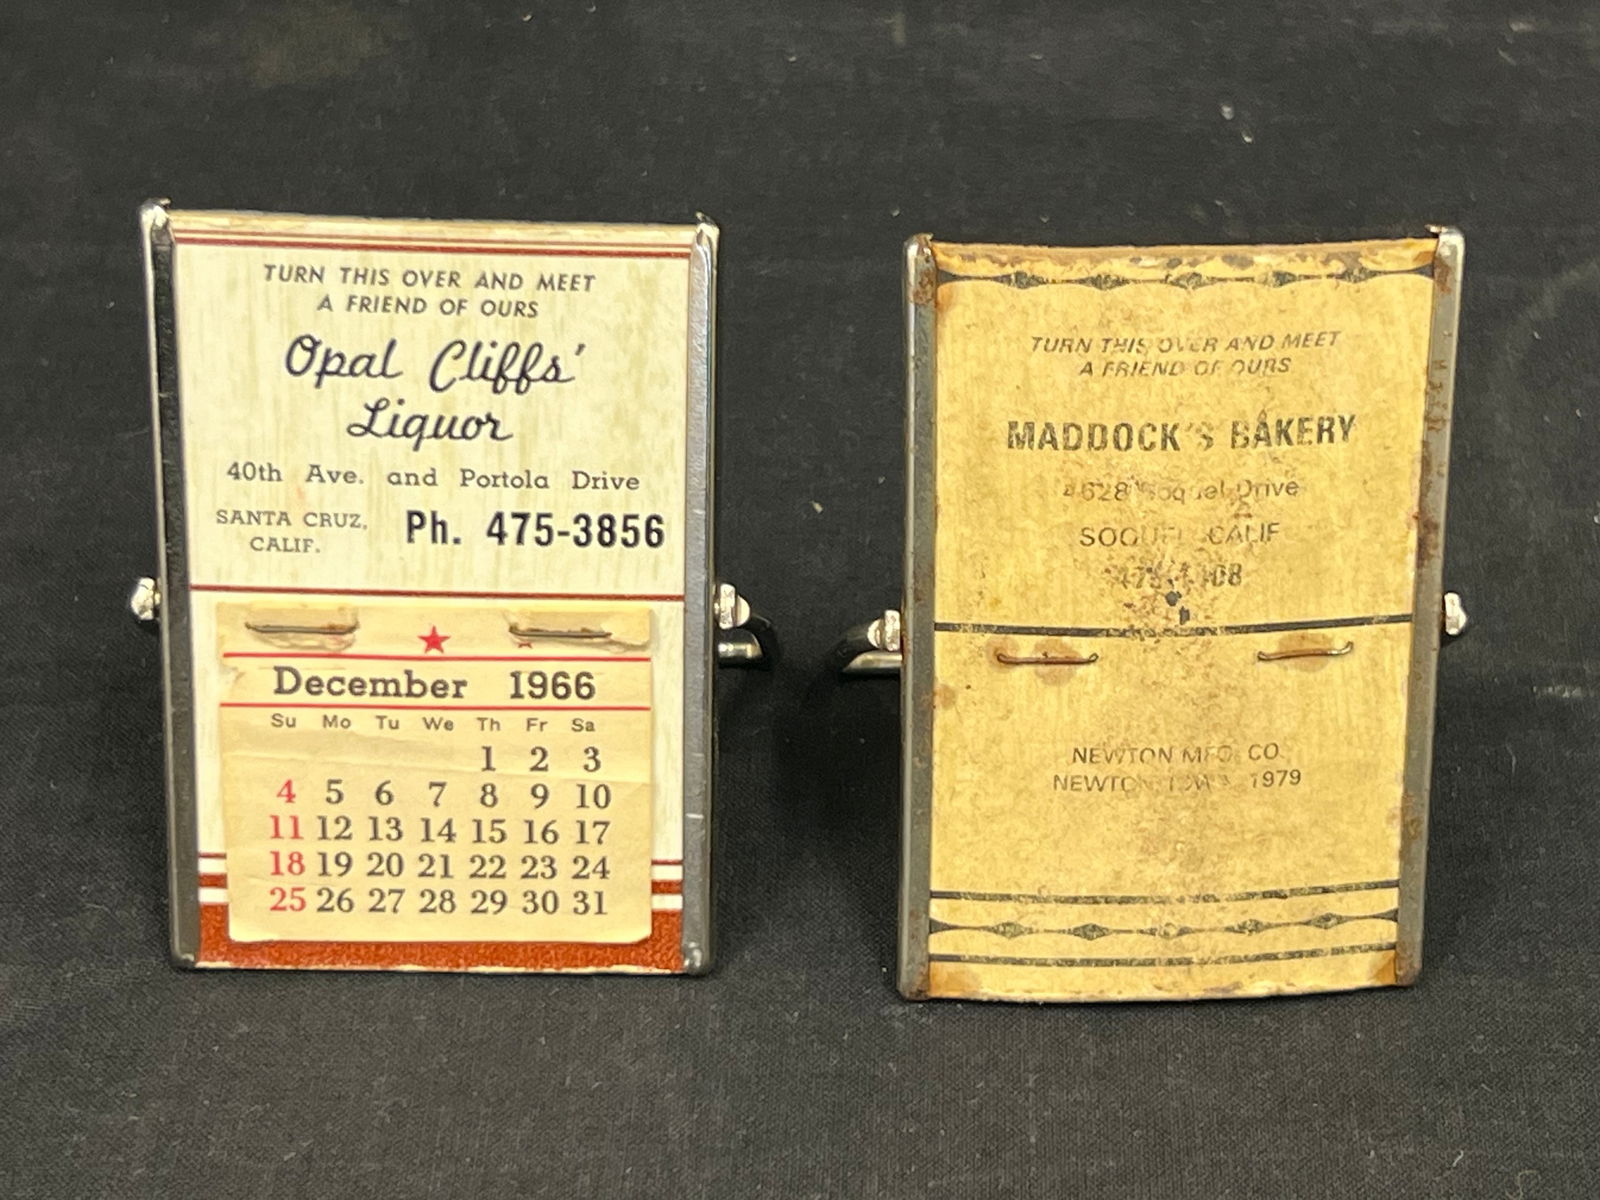 TURN THIS OVER AND MEET
A FRIEND OF OURS
Opal Cliffs'
Liquor
40th Ave. and Portola Drive
SANTA CRUZ,
CALIF.
Ph. 475-3856
December 1966
Su Mo Tu We Th Fr Sa
1 2 3
4 5 6 7 8 9 10
11 12 13 14 15 16 17
18 19 20 21 22 23 24
25 26 27 28 29 30 31
TURN THIS OVER AND MEET
A FRIEND OF OURS
MADDOCK'S BAKERY
4628 Soquel Drive
SOQUEL CALIF
NEWTON MFG. CO.
NEWTON IOWA 1979